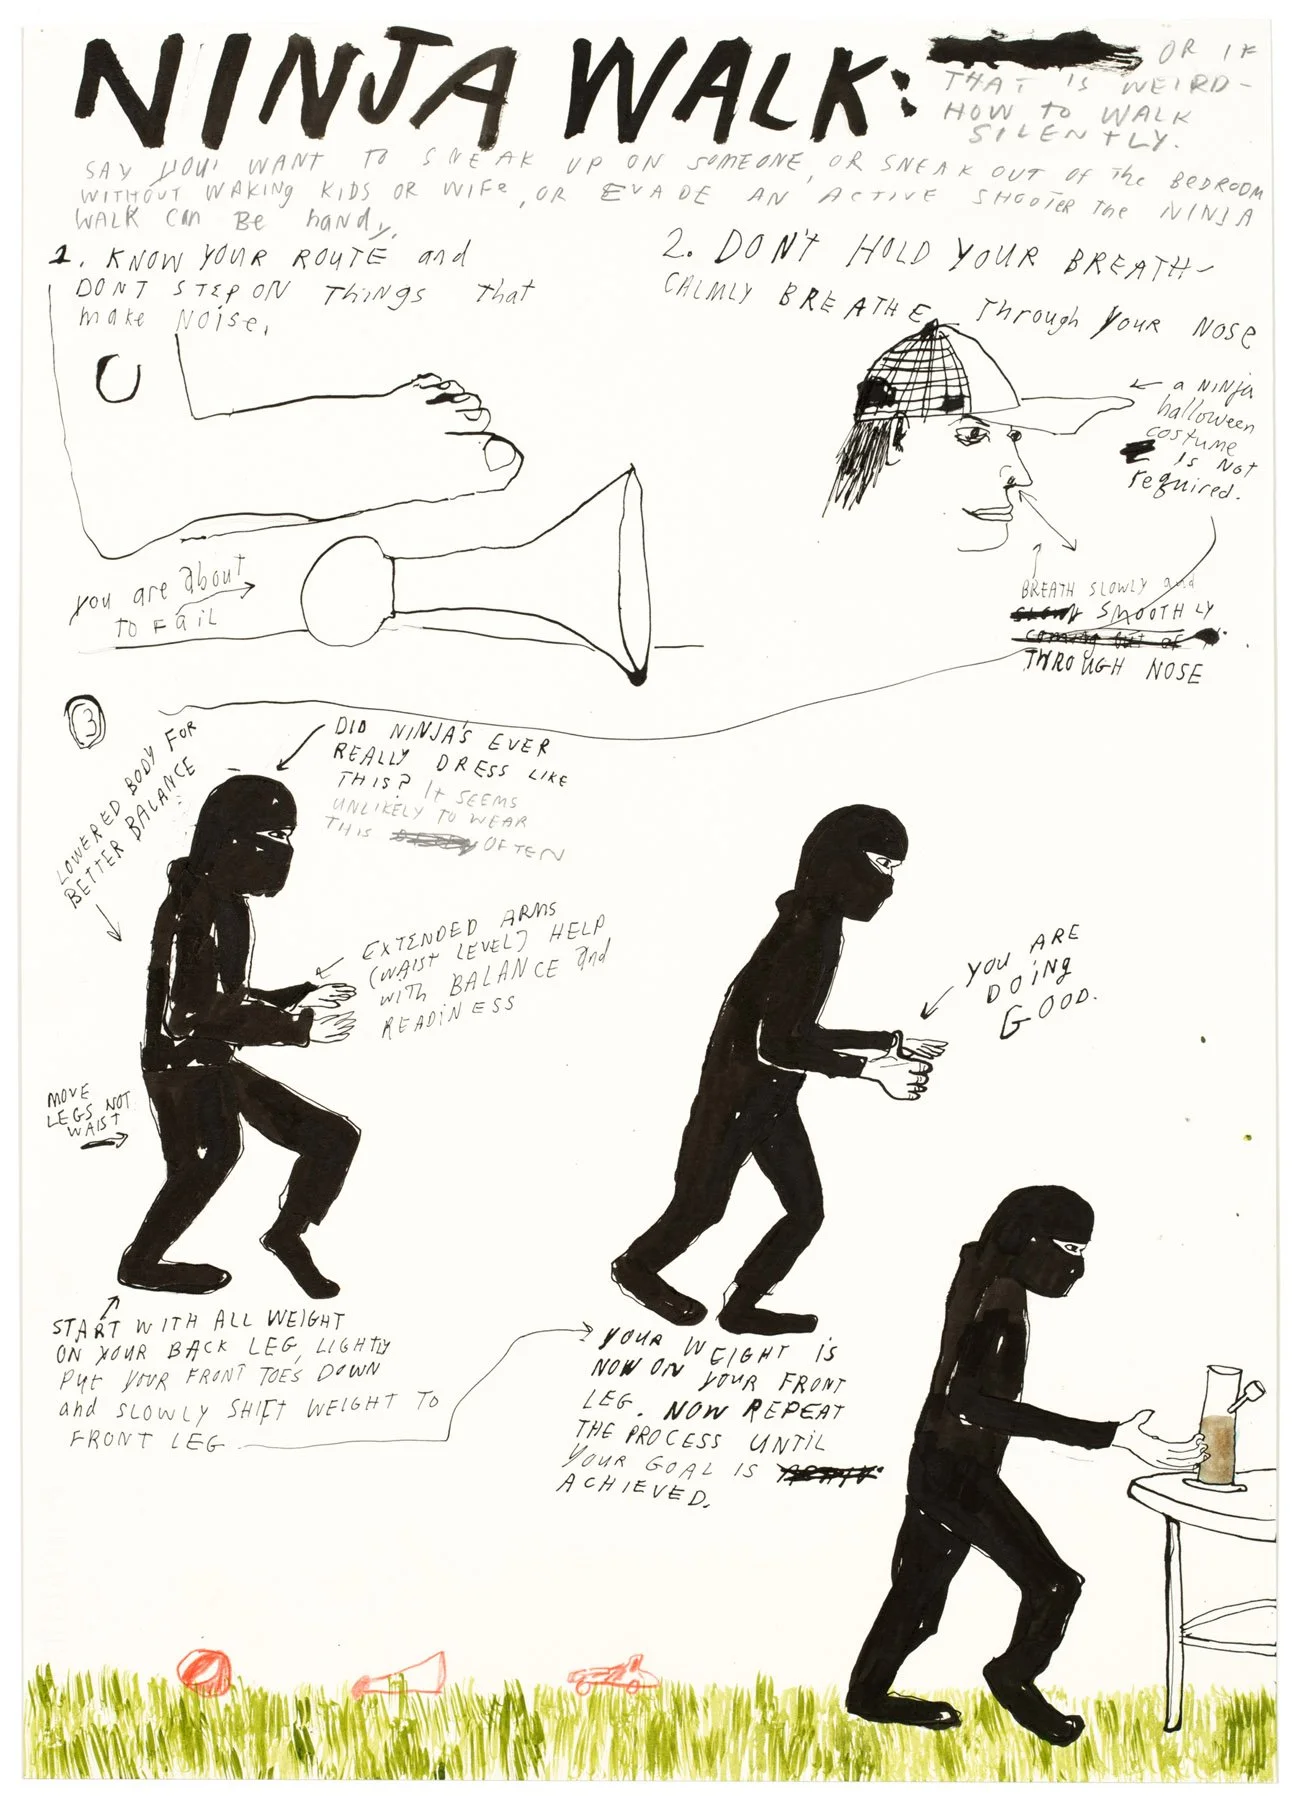 NINJA WALK:
OR IF
THAT IS WEIRD-
HOW TO WALK
SILENTLY.
SAY YOU WANT TO SNEAK UP ON SOMEONE, OR SNEAK OUT OF The BEDROOM
WITHOUT WAKING KIDS OR WIFE, OR EVADE AN ACTIVE SHOOTER The NINJA
WALK CAN BE handy.
1. KNOW YOUR ROUTE and
DONT STEP ON Things that
make NOISE.
2. DON'T HOLD YOUR BREATH-
CALMLY BREATHE Through YOUR NOSE
a NINJA
halloween
costume
is Not
required.
you are about
to FaiL
BREATH SLOWLY and
SMOOTHLY
THROUGH NOSE
3
LOWERED BODY FOR
BETTER BALANCE
DID NINJA'S EVER
REALLY DRESS LIKE
THIS? It SEEMS
UNLIKELY TO WEAR
THIS OFTEN
EXTENDED ARMS
(WAIST LEVEL) HELP
with BALANCE and
READINESS
YOU ARE
DOING
GOOD.
MOVE
LEGS NOT
WAIST
START WITH ALL WEIGHT
ON YOUR BACK LEG, LIGHTLY
PUT YOUR FRONT TOES DOWN
and SLOWLY SHIFT WEIGHT TO
FRONT LEG
YOUR WEIGHT IS
NOW ON YOUR FRONT
LEG. NOW REPEAT
THE PROCESS UNTIL
YOUR GOAL IS
ACHIEVED.